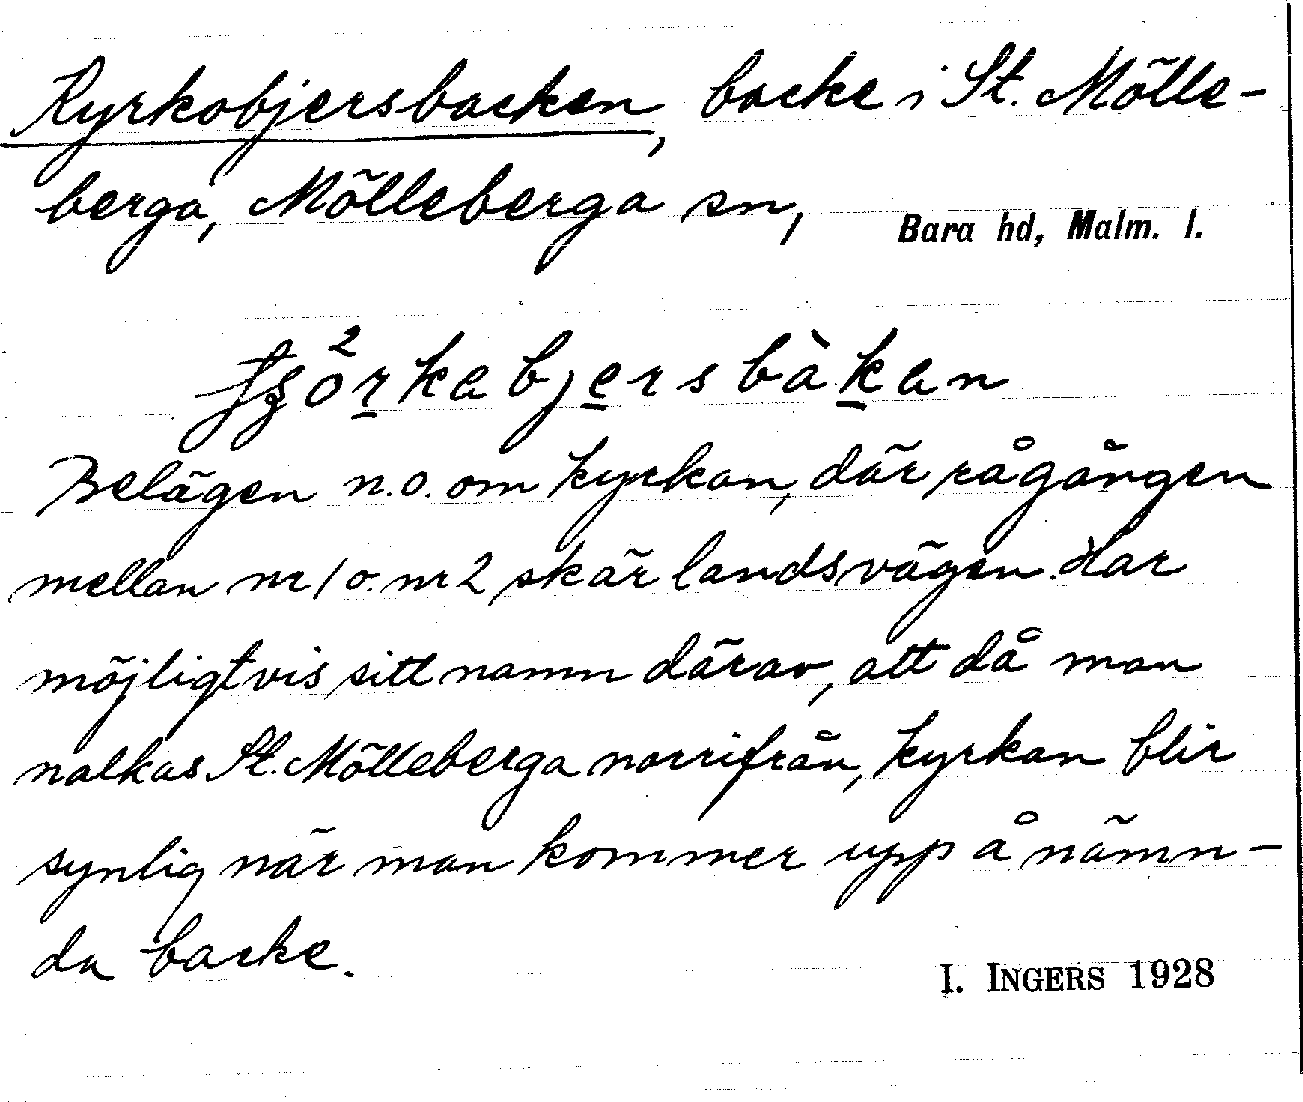 Kyrkobjersbacken, backe i St. Mölle-
berga, Mölleberga sn, Bara hd, Malm. l.
Belägen n.o. om kyrkan, där rågången
mellan nr 1 o. nr 2 skär landsvägen. Har
möjligtvis sitt namn därav, att då man
nalkas St. Mölleberga norrifrån, kyrkan blir
synlig när man kommer upp å nämn-
da backe.
I. INGERS 1928